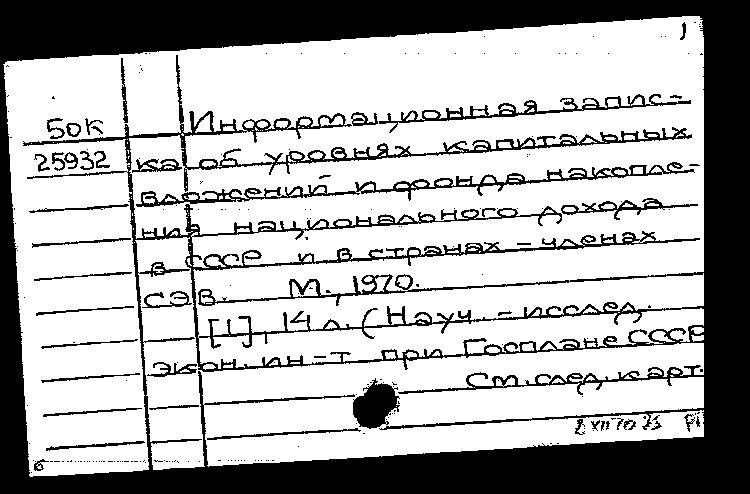 1
50К Информационная запис-
25932 ка об уровнях капитальных
вложений и фонда накопле-
ния национального дохода
в СССР и в странах – членах
СЭВ. М., 1970.
[1], 14 л. (Науч. – исслед.
экон. ин-т при Госплане СССР
См. след. карт.
8 XII 70
6